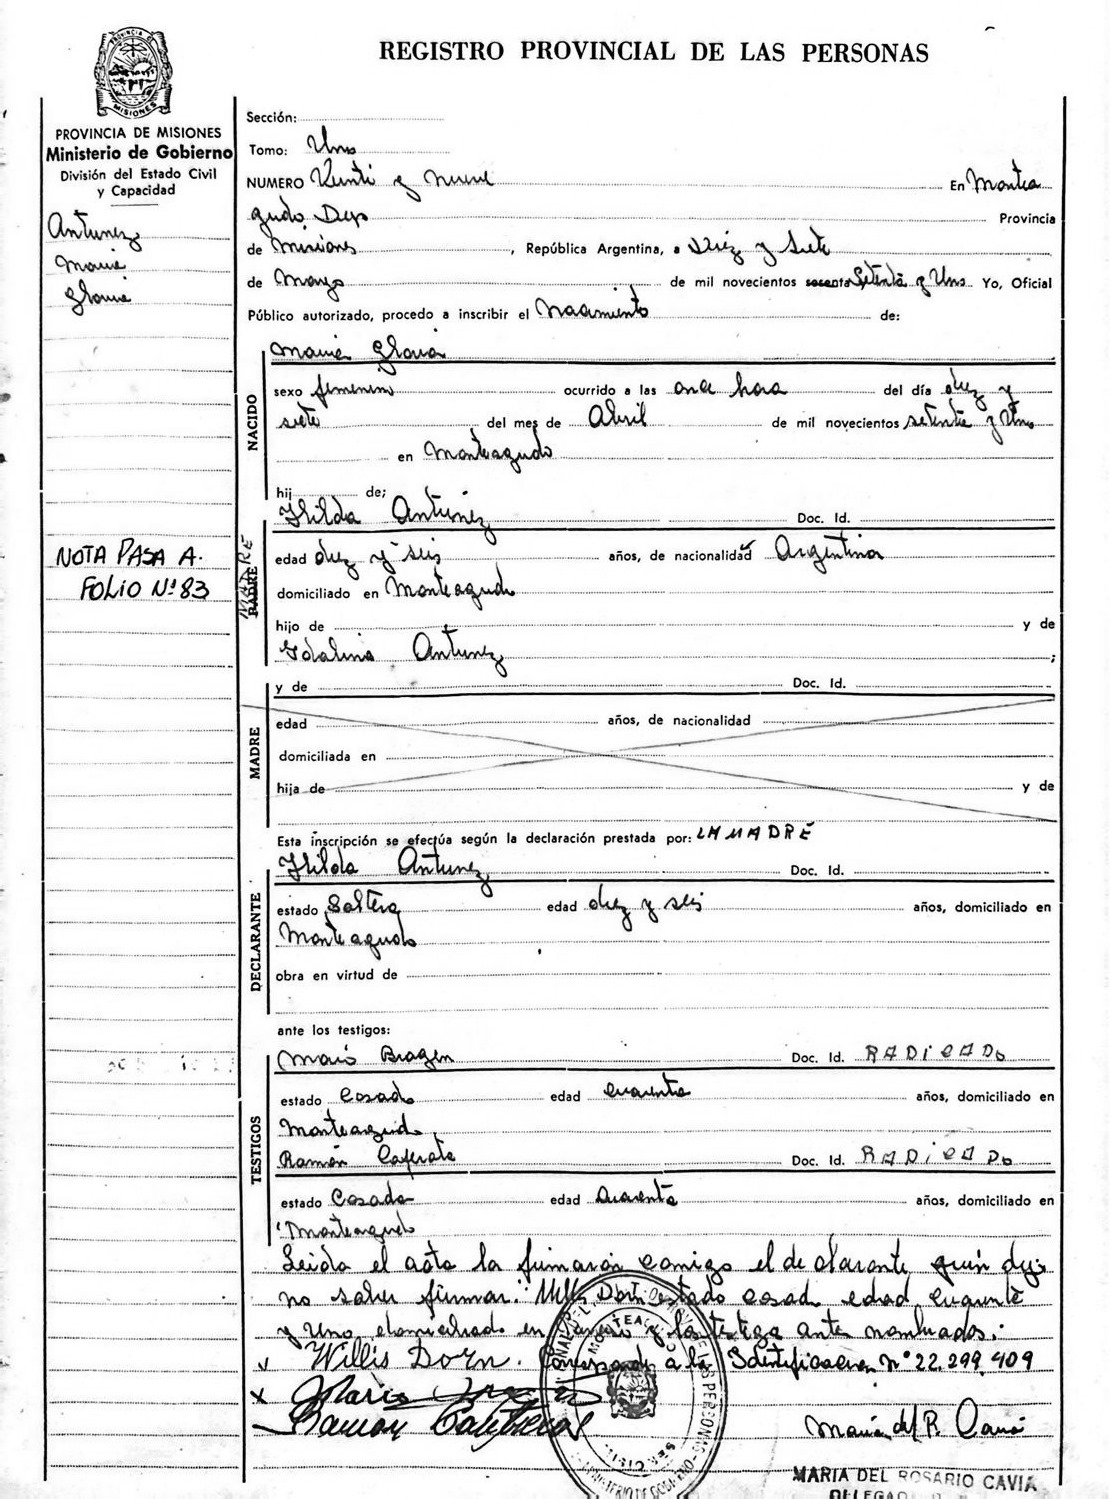 REGISTRO PROVINCIAL DE LAS PERSONAS
PROVINCIA DE
MISIONES
PROVINCIA DE MISIONES
Ministerio de Gobierno
División del Estado Civil
y Capacidad
Antunez
Maria
Gloria
NOTA PASA A.
FOLIO Nº 83
Sección:
Tomo: Uno
NUMERO Veinti y nueve En Montea
gudo Dep Provincia
de Misiones, República Argentina, a Diez y Siete
de Mayo de mil novecientos sesenta Setenta y Uno Yo, Oficial
Público autorizado, procedo a inscribir el Nacimiento de:
NACIDO
Maria Gloria
sexo femenino ocurrido a las once hora del día diez y
siete del mes de Abril de mil novecientos setenta y Uno
en Monteagudo
hij de;
Hilda Antunez Doc. Id.
MADRE
PADRE
edad diez y seis años, de nacionalidad Argentina
domiciliado en Monteagudo
hijo de y de
Idalina Antunez ;
y de Doc. Id.
MADRE
edad años, de nacionalidad
domiciliada en
hija de y de
Esta inscripción se efectúa según la declaración prestada por: LA MADRE
DECLARANTE
Hilda Antunez Doc. Id.
estado Soltera edad diez y seis años, domiciliado en
Monteagudo
obra en virtud de
ante los testigos:
TESTIGOS
Mario Doc. Id. RADICADO
estado Casado edad cuarenta años, domiciliado en
Monteagudo
Ramón Doc. Id. RADICADO
estado Casado edad cuarenta años, domiciliado en
Monteagudo
Leida el acta la firmaron comigo el declarante quien dijo
no saber firmar. Willis Dorn estado casado edad cuarenta
y Uno domiciliado en y los testigo ante nombrados.
x Willis Dorn. Corresponde a la Identificacion nº 22.299.409
x Mario
Ramon
Maria del R. Cavia
MARIA DEL ROSARIO CAVIA